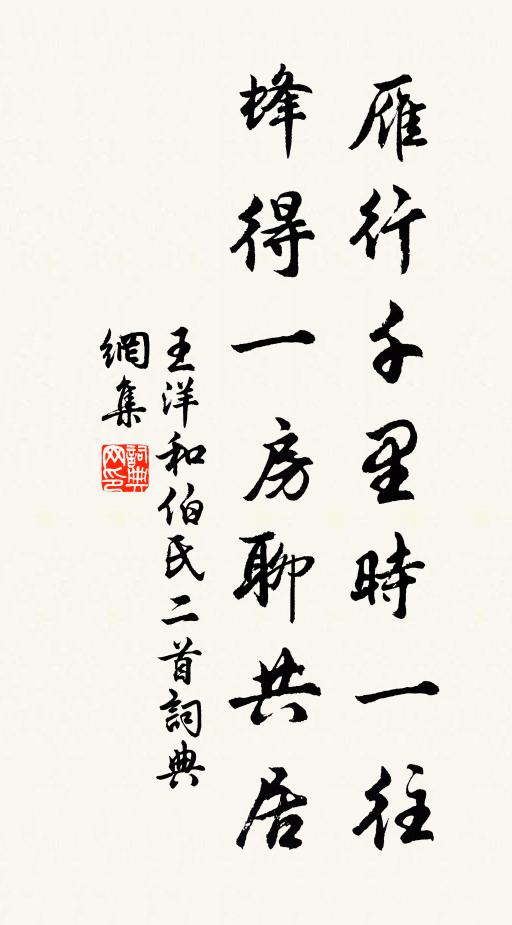 雁行千里時一往
蜂得一房聊共居
王洋和伯氏二首詞典
網集
詞典网印